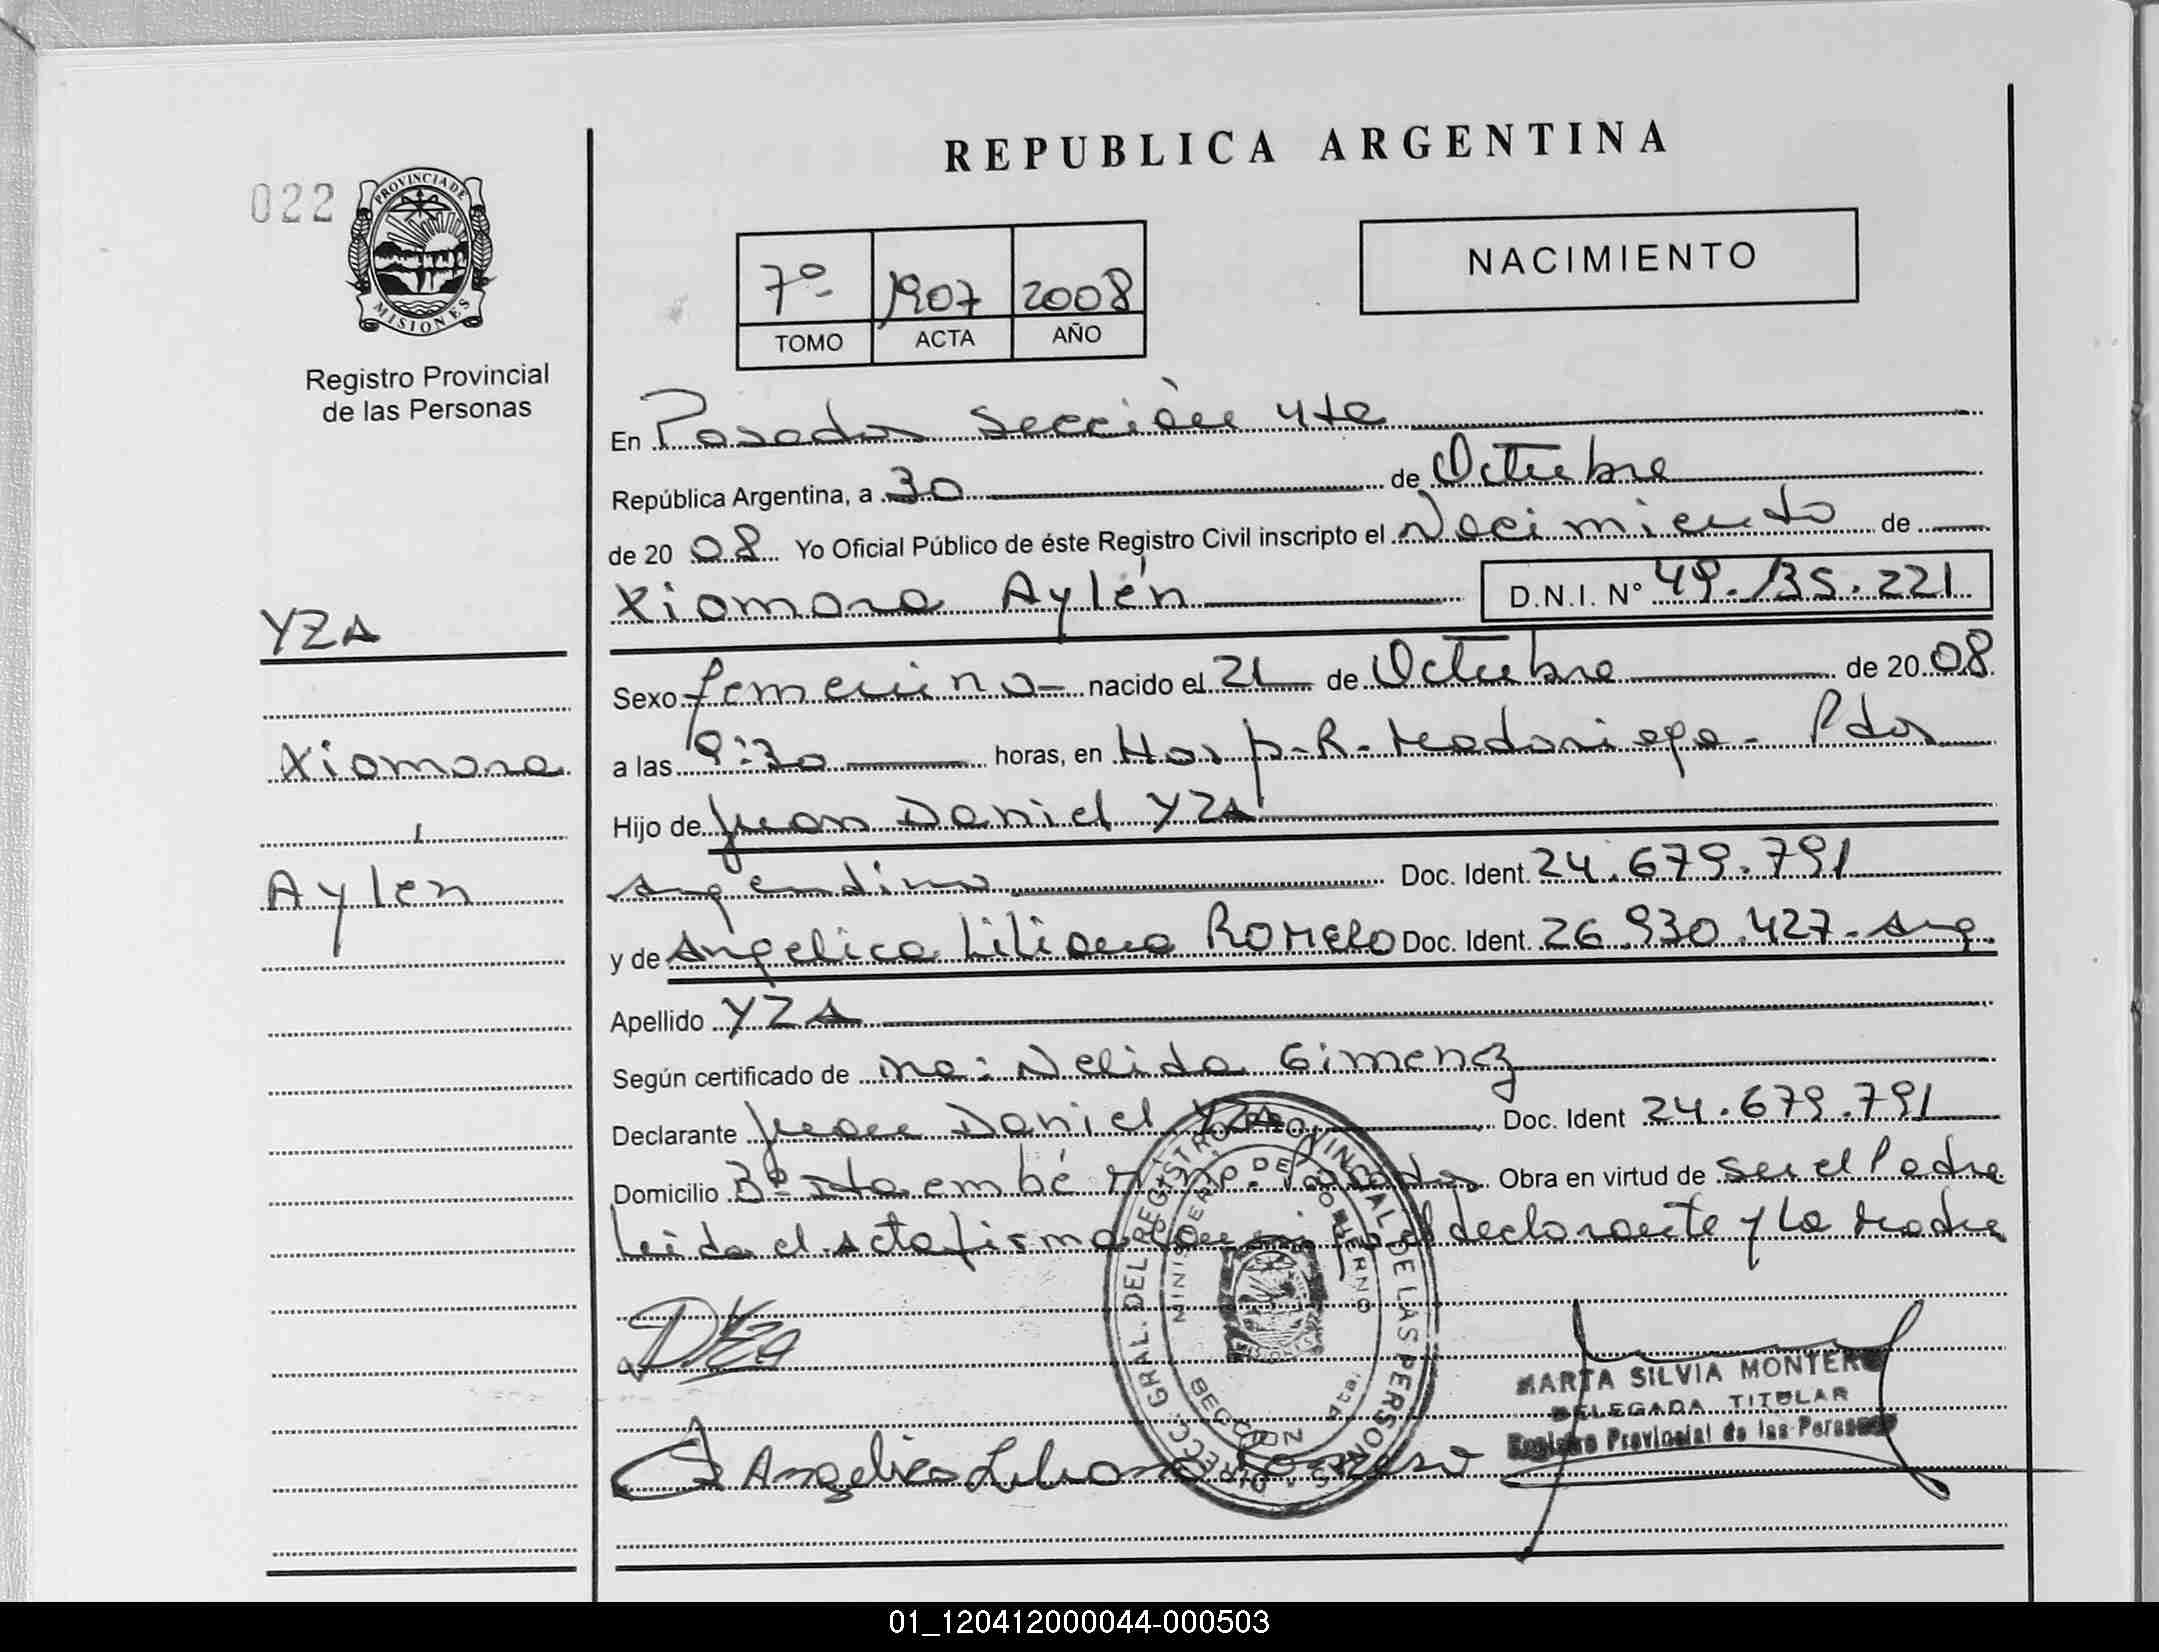 REPUBLICA ARGENTINA
022
PROVINCIA DE MISIONES
Registro Provincial
de las Personas
7º 1907 2008
TOMO ACTA AÑO
NACIMIENTO
En Posadas Sección 4ta
República Argentina, a 30 de Octubre
de 2008 Yo Oficial Público de éste Registro Civil inscripto el Nacimiento de
Xiomara Aylén D.N.I. Nº 49.135.221
YZA
Xiomara
Aylén
Sexo femenino nacido el 21 de Octubre de 2008
a las 9:30 horas, en Hosp. R. Madariaga - Pdas
Hijo de Juan Daniel YZA
Argentino Doc. Ident. 24.679.791
y de Angelica Liliana ROMERO Doc. Ident. 26.930.427 - Arg.
Apellido YZA
Según certificado de Nelida Gimenez
Declarante Juan Daniel YZA Doc. Ident 24.679.791
Domicilio Bº Itaembé Posadas Obra en virtud de ser el Padre
Leida el acta firman el declarante y la Madre
DIRECC. GRAL. DEL REGISTRO PROVINCIAL DE LAS PERSONAS
MINISTERIO DE GOBIERNO
SECCION 4ta.
D YZA
Angelica Liliana Romero
MARTA SILVIA MONTERO
DELEGADA TITULAR
Registro Provincial de las Personas
01_120412000044-000503